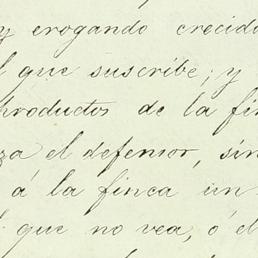 y erogando crecido
l que suscribe; y
productos de la fin
za el defensor, sin
á la finca un
l que no vea, ó el